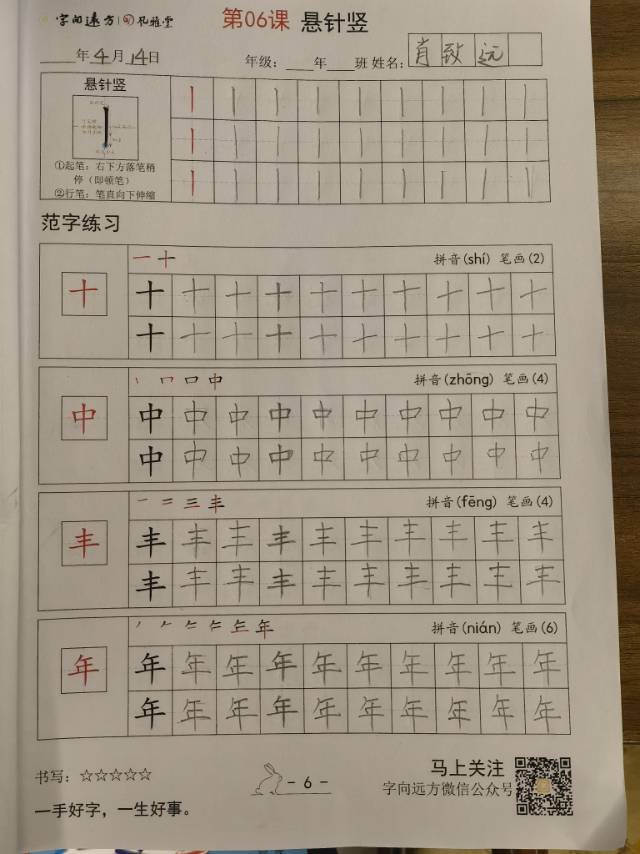 字向远方 礼雅堂 第06课 悬针竖
年4月14日 年级: 年 班 姓名: 肖致远
悬针竖
①起笔:右下方落笔稍
停(即顿笔)
②行笔:笔直向下伸缩
范字练习
一十 拼音(shí) 笔画(2)
十 十十十十十十十十十十
十十十十十十十十十十
丨 口 口 中 拼音(zhōng) 笔画(4)
中 中中中中中中中中中中
中中中中中中中中中中
一 二 三 丰 拼音(fēng) 笔画(4)
丰 丰丰丰丰丰丰丰丰丰丰
丰丰丰丰丰丰丰丰丰丰
年 拼音(nián) 笔画(6)
年 年年年年年年年年年年
年年年年年年年年年年
书写:☆☆☆☆☆ - 6 - 马上关注
字向远方微信公众号
一手好字,一生好事。